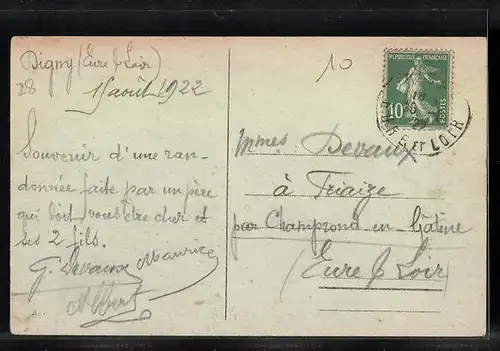 Digny (Eure & Loir)
28
15 août 1922
Souvenir d'une ran-
donnée faite par un père
qui doit vous être cher et
ses 2 fils.
G. Devaux Maurice
Albert
10
REPUBLIQUE FRANÇAISE
10c
POSTES
EURE ET LOIR
Mmes Devaux
à Friaize
par Champrond en Gâtine
(Eure & Loir)